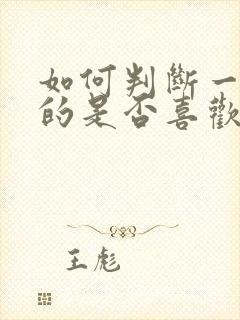 如何判斷一
的是否喜歡
王彪